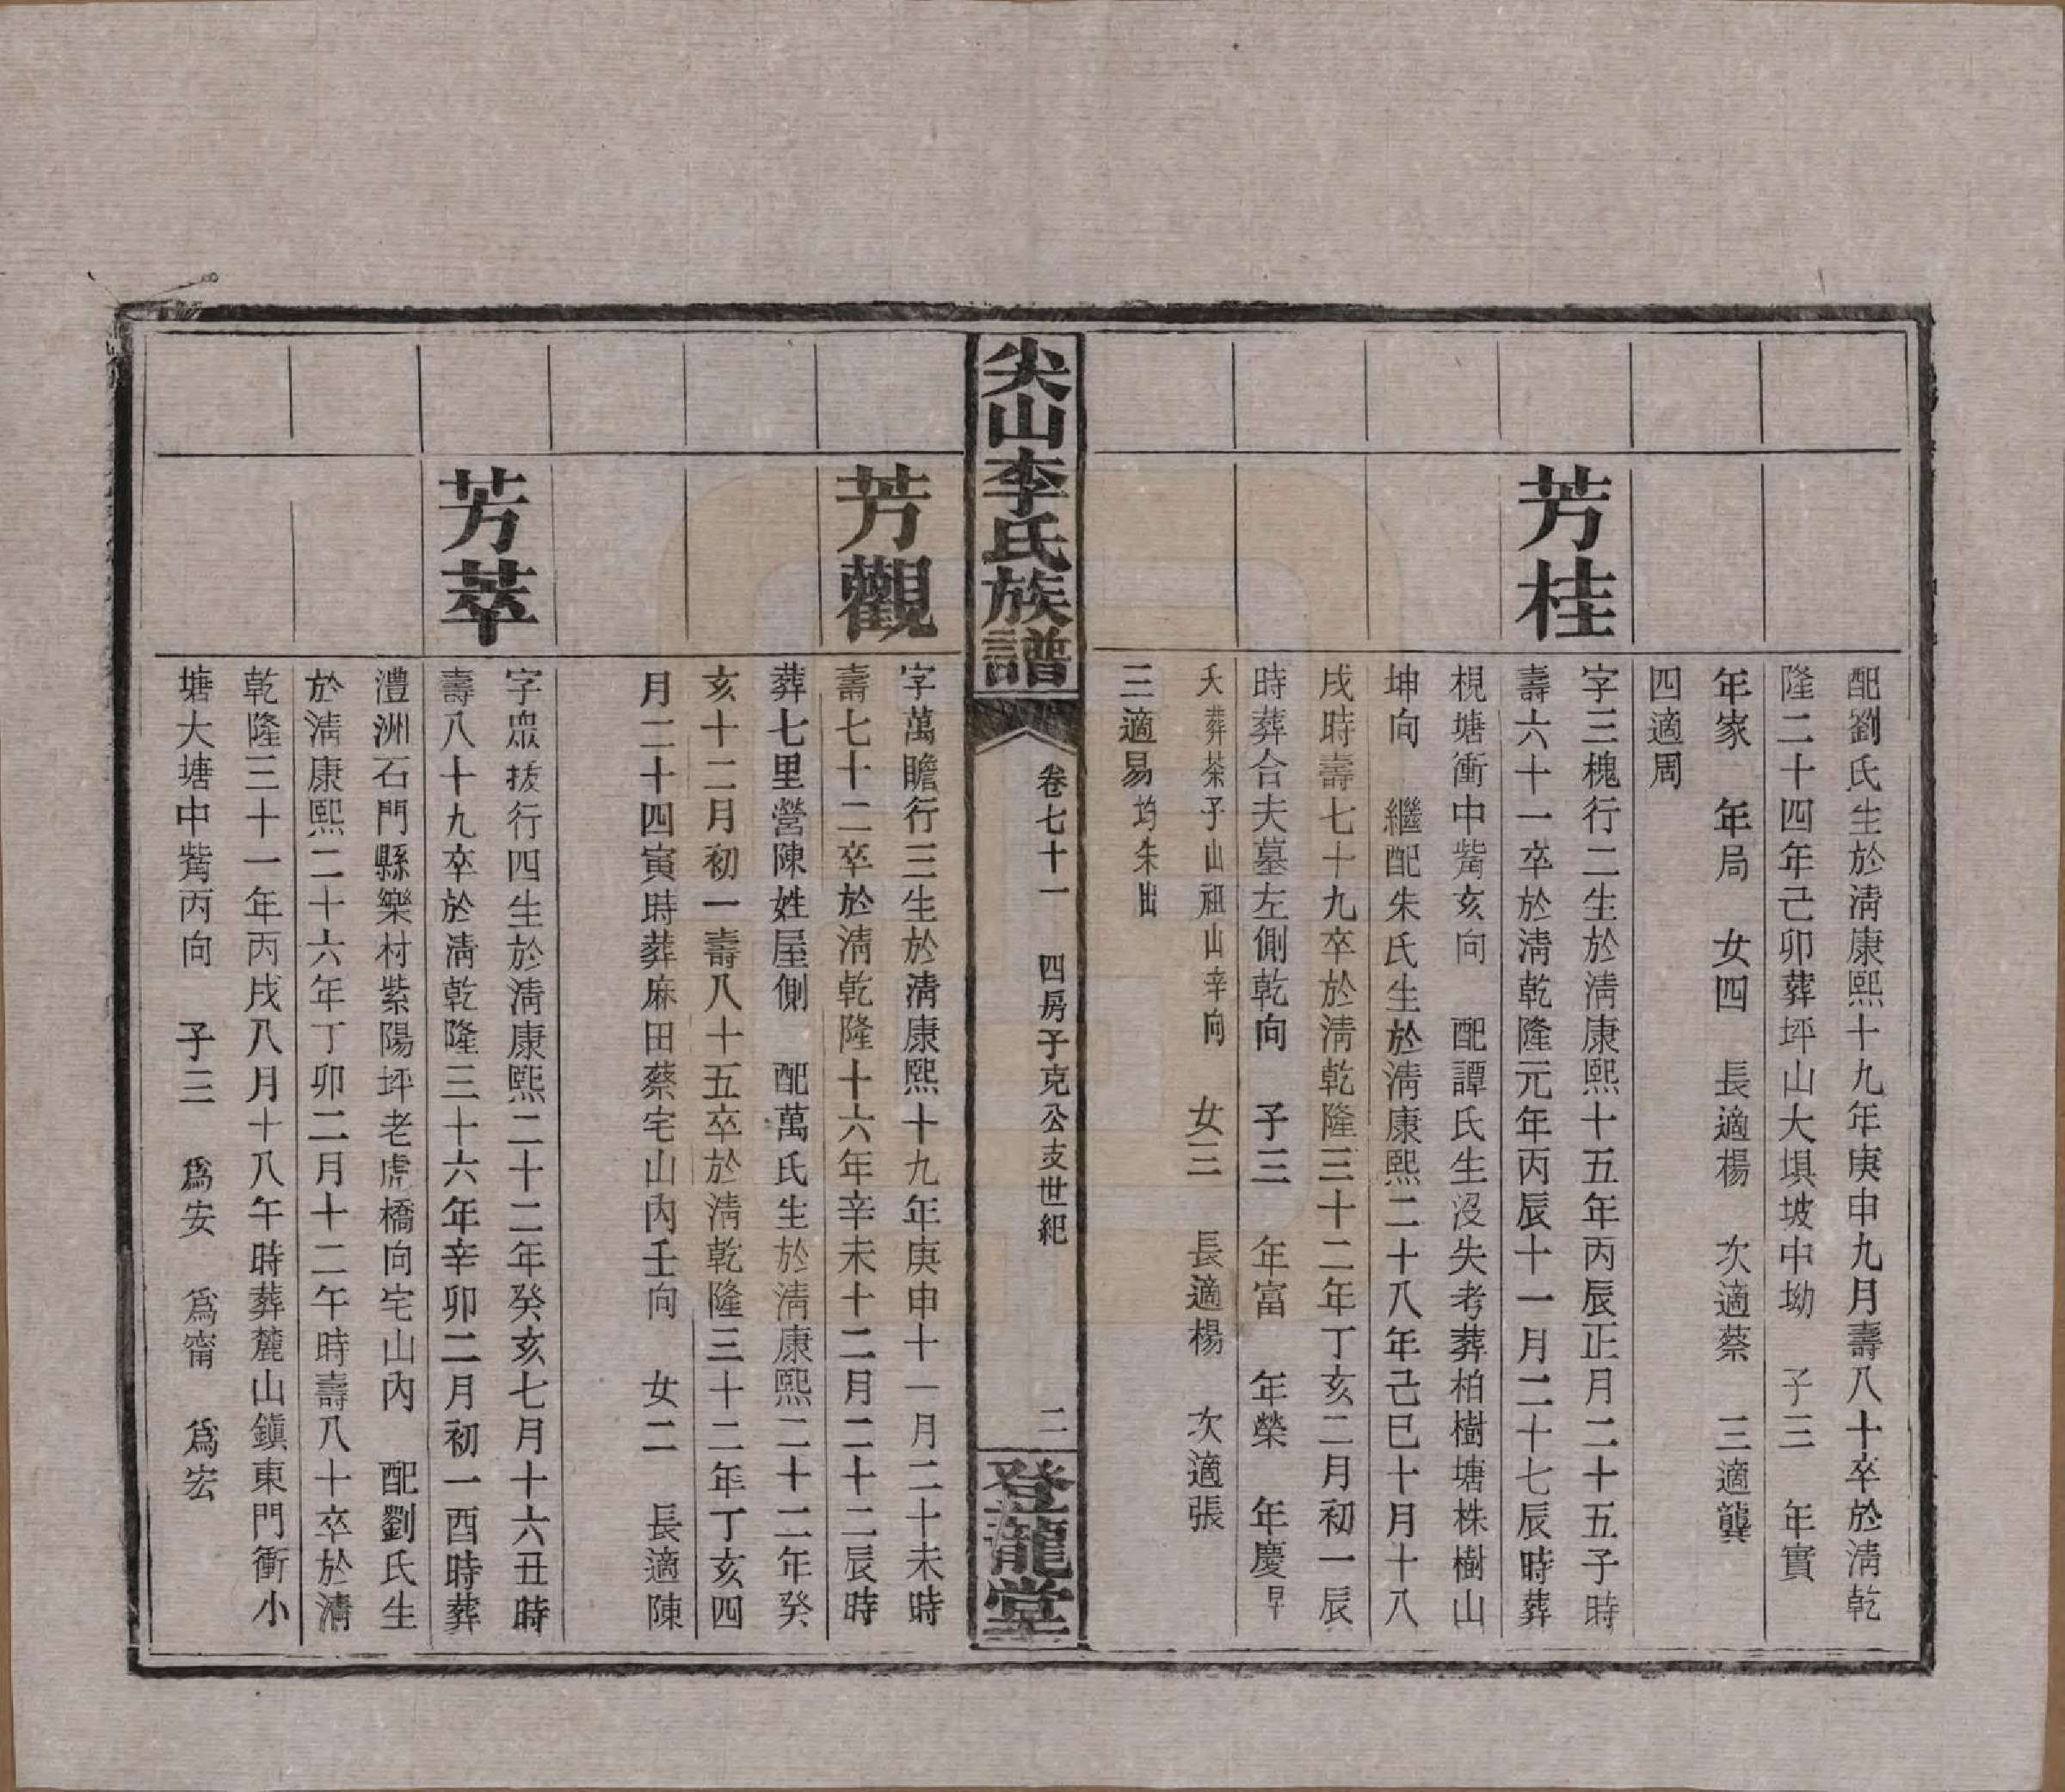 配劉氏生於淸康熙十九年庚申九月壽八十卒於淸乾
隆二十四年己卯葬坪山大埧坡中坳　子三　年實
年家　年局　女四　長適楊　次適蔡　三適龔
四適周
芳桂
字三槐行二生於淸康熙十五年丙辰正月二十五子時
壽六十一卒於淸乾隆元年丙辰十一月二十七辰時葬
梘塘衝中嘴亥向　配譚氏生沒失考葬柏樹塘株樹山
坤向　繼配朱氏生於淸康熙二十八年己巳十月十八
戌時壽七十九卒於淸乾隆三十二年丁亥二月初一辰
時葬合夫墓左側乾向　子三　年富　年榮　年慶早
夭葬茶子山祖山辛向　女三　長適楊　次適張
三適易均朱出
尖山李氏族譜
卷七十一　四房子克公支世紀
二
登龍堂
芳觀
字萬瞻行三生於淸康熙十九年庚申十一月二十未時
壽七十二卒於淸乾隆十六年辛未十二月二十二辰時
葬七里營陳姓屋側　配萬氏生於淸康熙二十二年癸
亥十二月初一壽八十五卒於淸乾隆三十二年丁亥四
月二十四寅時葬麻田蔡宅山內壬向　女二　長適陳
芳萃
字眾拔行四生於淸康熙二十二年癸亥七月十六丑時
壽八十九卒於淸乾隆三十六年辛卯二月初一酉時葬
澧洲石門縣樂村紫陽坪老虎橋向宅山內　配劉氏生
於淸康熙二十六年丁卯二月十二午時壽八十卒於淸
乾隆三十一年丙戌八月十八午時葬麓山鎭東門衝小
塘大塘中嘴丙向　子三　爲安　爲甯　爲宏